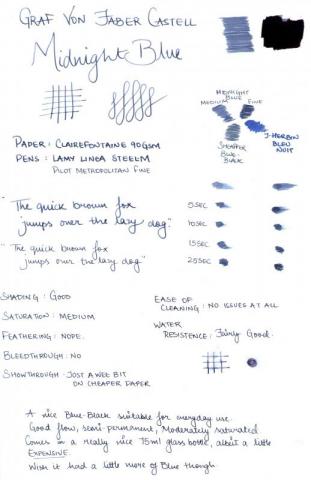 GRAF VON FABER CASTELL
Midnight Blue
MIDNIGHT
BLUE
MEDIUM
FINE
SHEAFFER
BLUE-
BLACK
J-HERBIN
BLEU
NUIT
PAPER : CLAIREFONTAINE 90GSM
PENS : LAMY LINEA STEEL M
PILOT METROPOLITAN FINE
The quick brown fox
jumps over the lazy dog."
"The quick brown fox
jumps over the lazy dog"
5SEC
10SEC
15SEC
25SEC
SHADING : GOOD
SATURATION : MEDIUM
FEATHERING : NOPE.
BLEEDTHROUGH : NO
SHOWTHROUGH - JUST A WEE BIT
ON CHEAPER PAPER
EASE OF
CLEANING : NO ISSUES AT ALL
WATER
RESISTENCE : Fairly Good.
A nice Blue-Black suitable for everyday use.
Good flow, semi-permanent, Moderately saturated
Comes in a really nice 75ml glass bottle, albeit a little
EXPENSIVE.
Wish it had a little more of Blue though